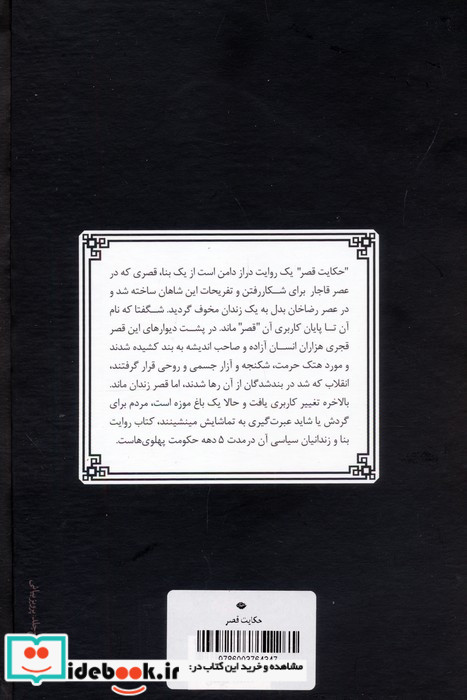 "حکایت قصر" یک روایت دراز دامن است از یک بنا، قصری که در
عصر قاجار برای شکاررفتن و تفریحات این شاهان ساخته شد و
در عصر رضاخان بدل به یک زندان مخوف گردید. شگفتا که نام
آن تا پایان کاربری آن "قصر" ماند. در پشت دیوارهای این قصر
قجری هزاران انسان آزاده و صاحب اندیشه به بند کشیده شدند
و مورد هتک حرمت، شکنجه و آزار جسمی و روحی قرار گرفتند،
انقلاب که شد در بندشدگان از آن رها شدند، اما قصر زندان ماند.
بالاخره تغییر کاربری یافت و حالا یک باغ موزه است، مردم برای
گردش یا شاید عبرت‌گیری به تماشایش مینشینند، کتاب روایت
بنا و زندانیان سیاسی آن درمدت ۵ دهه حکومت پهلوی‌هاست.
حکایت قصر
9786003764347
مشاهده و خرید این کتاب در:
idebook.ir